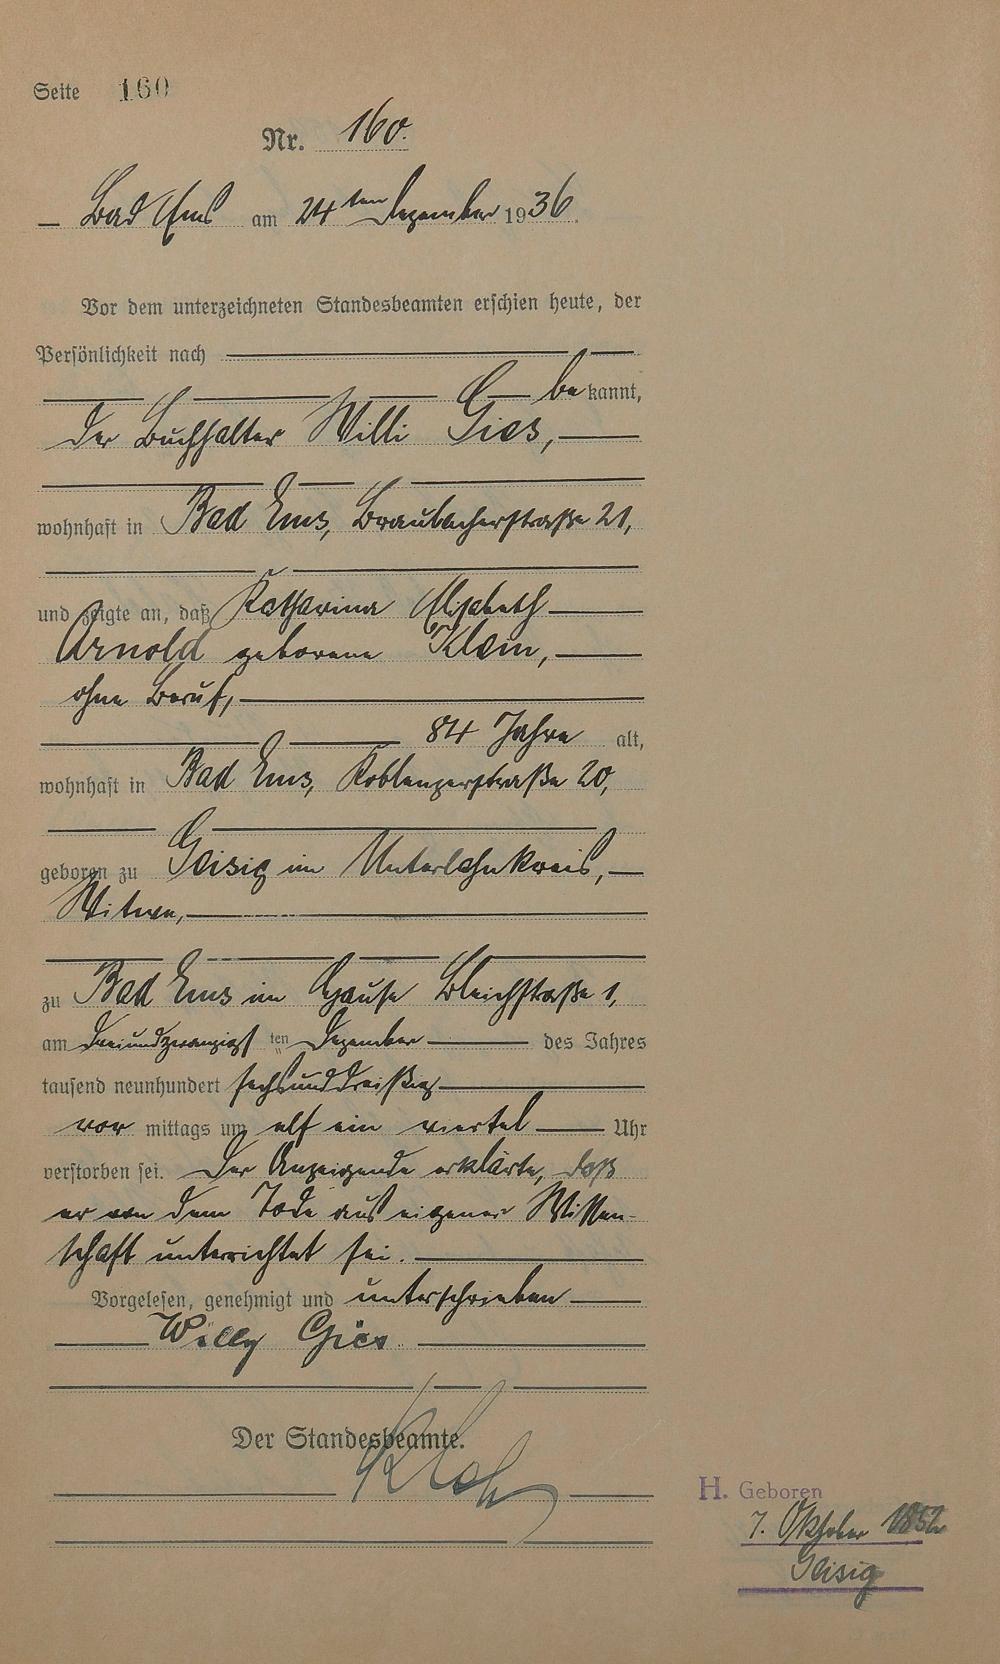 Seite 160
Nr. 160.
Bad Ems am 24ten Dezember 1936.
Vor dem unterzeichneten Standesbeamten erschien heute, der
Persönlichkeit nach
bekannt,
der Buchhalter Willi Gies,
wohnhaft in Bad Ems, Braubacherstraße 21,
und zeigte an, daß Katharina Elisabeth
Arnold geborene Klein,
ohne Beruf,
84 Jahre alt,
wohnhaft in Bad Ems, Koblenzerstraße 20,
geboren zu Geisig im Unterlahnkreis,
Witwe,
zu Bad Ems im Hause Bleichstraße 1,
am dreiundzwanzigsten Dezember des Jahres
tausend neunhundert sechsunddreißig
vor mittags um elf ein viertel Uhr
verstorben sei. Der Anzeigende erklärte, daß
er von dem Tode aus eigener Wissen-
schaft unterrichtet sei.
Vorgelesen, genehmigt und unterschrieben
Willy Gies
Der Standesbeamte.
H. Geboren
7. Oktober 1852
Geisig